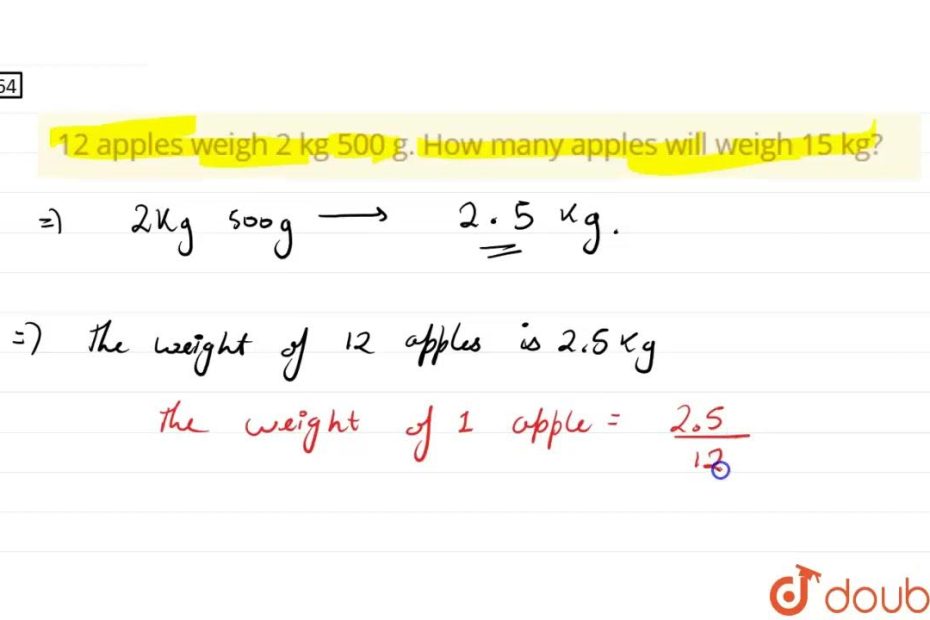 64
12 apples weigh 2 kg 500 g. How many apples will weigh 15 kg?
=) 2Kg 500g → 2.5 Kg.
=) The weight of 12 apples is 2.5 Kg
The weight of 1 apple = 2.5
12
doub